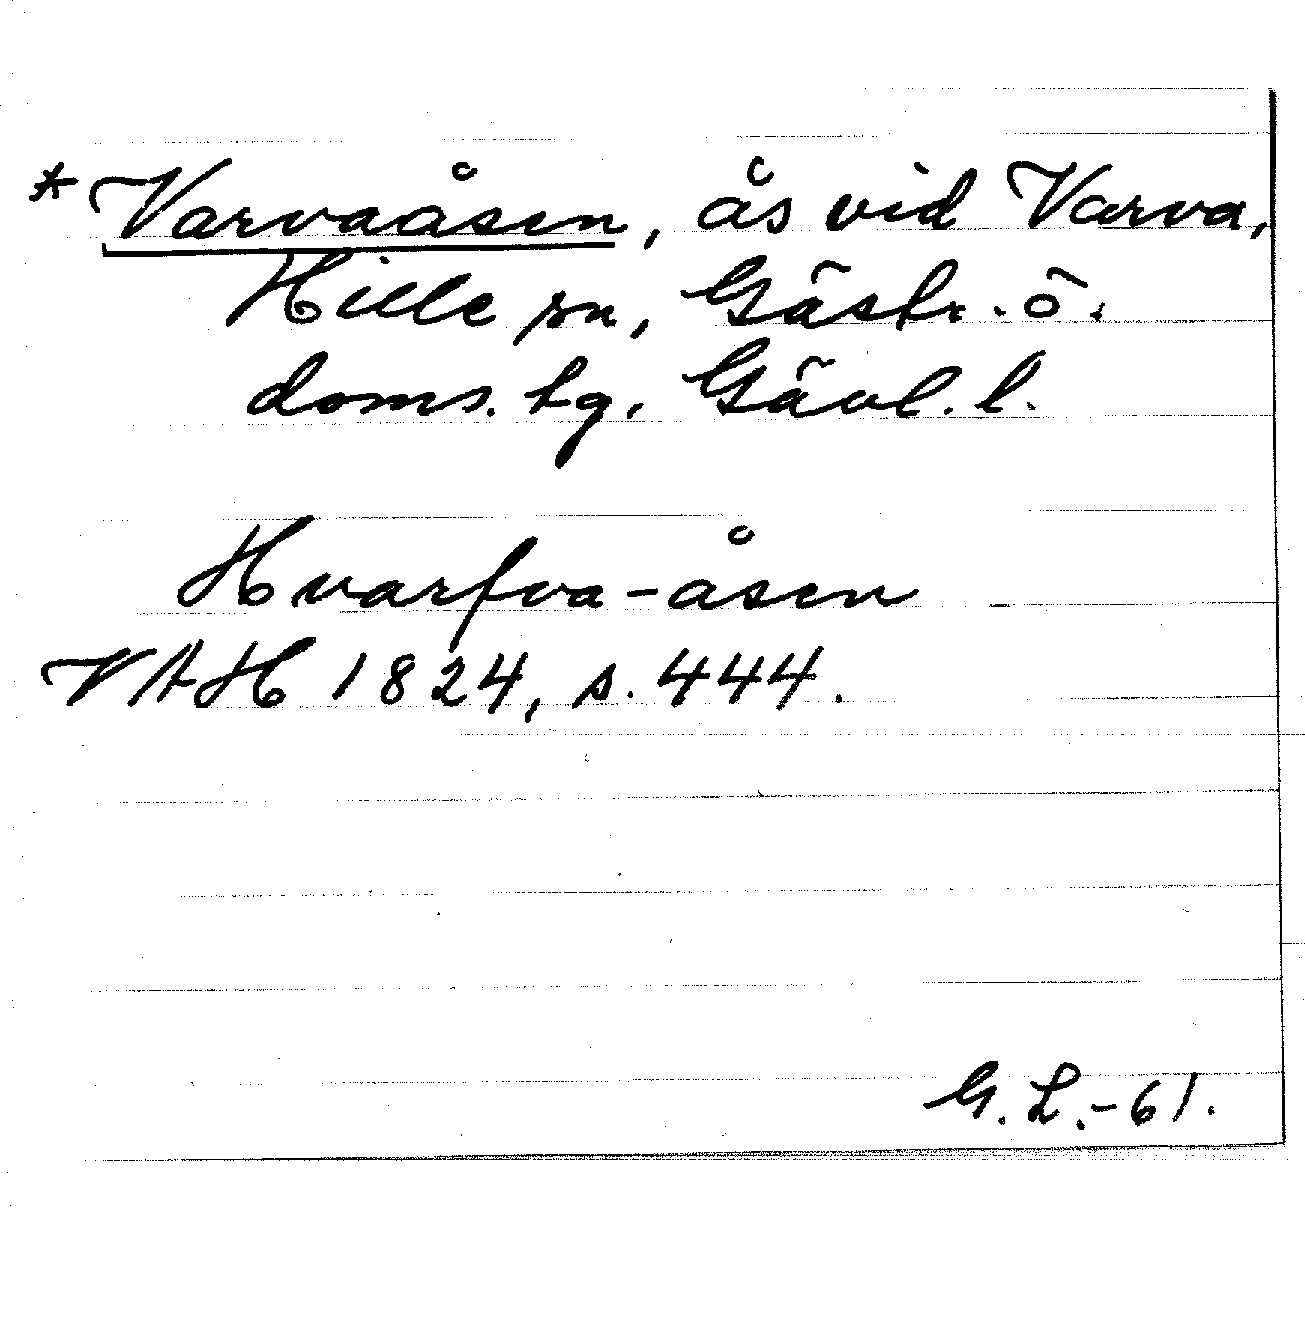 * Varvaåsen, ås vid Varva,
Hille sn, Gästr. ö.
doms. tg, Gävl. l.
Hvarfva-åsen
VAH 1824, s. 444.
G. L. - 61.